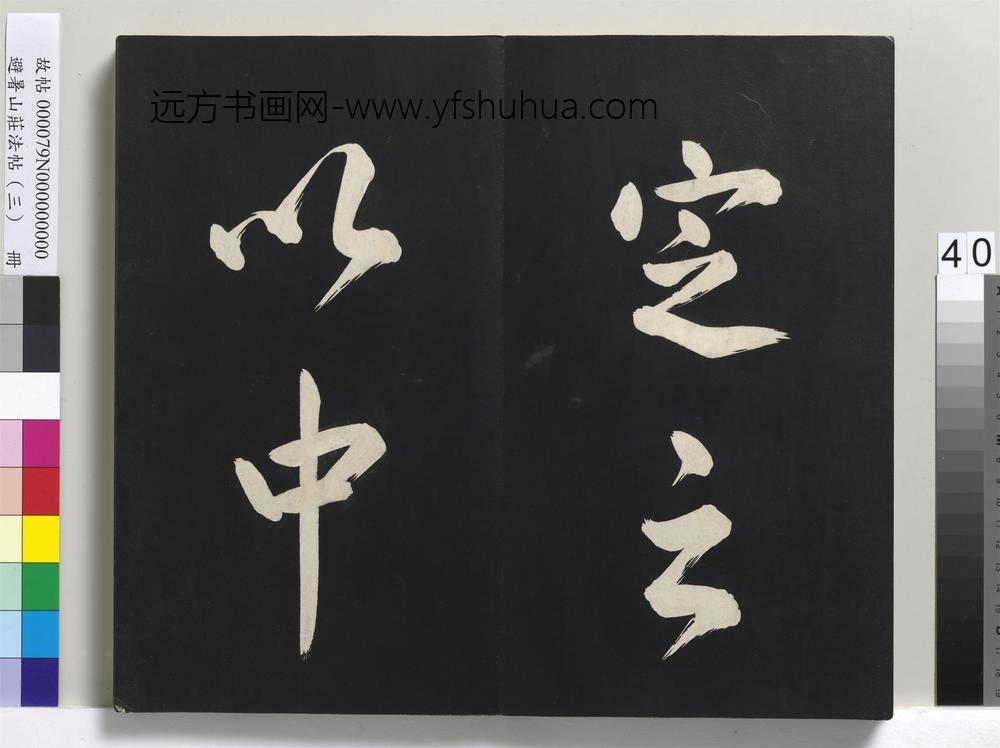 定之
以中
远方书画网-www.yfshuhua.com
故帖 000079N000000000
避暑山莊法帖(三) 冊
40